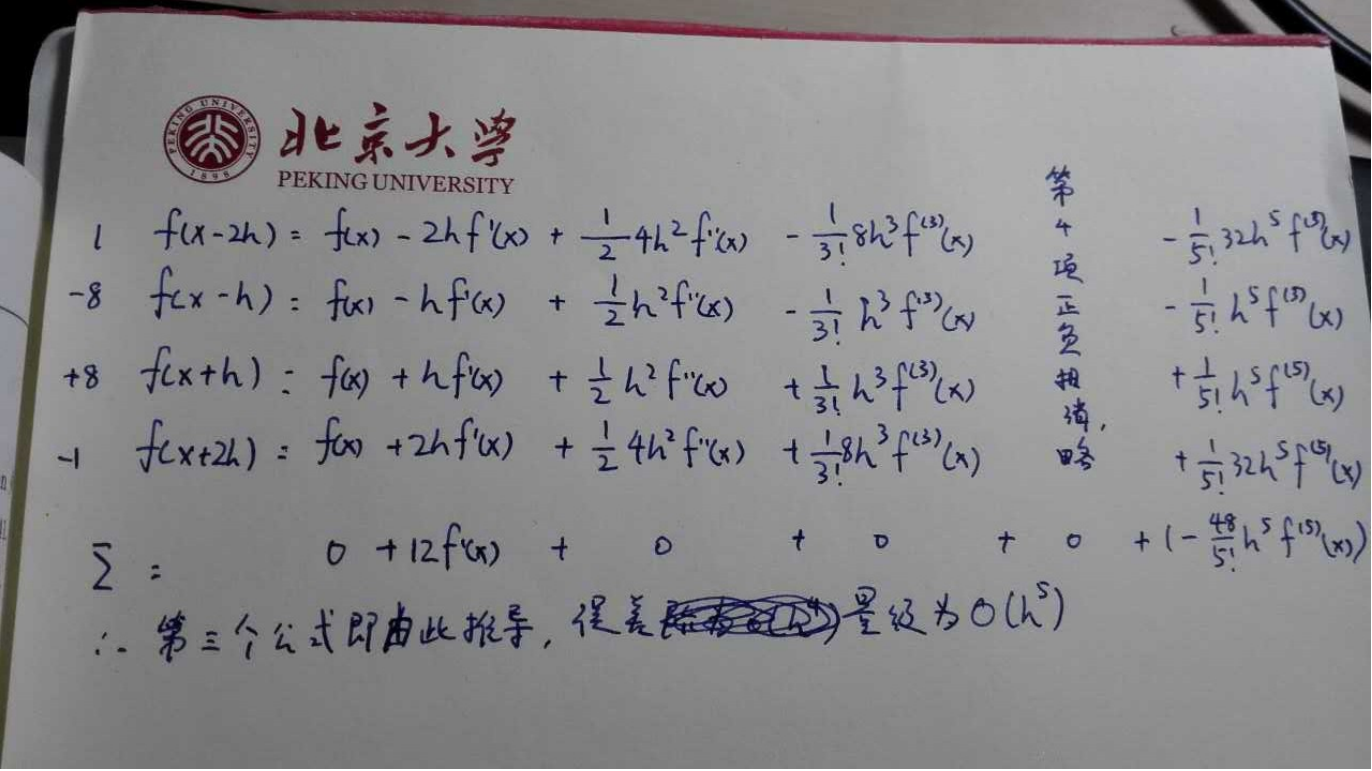 PEKING UNIVERSITY
1898
北京大学
PEKING UNIVERSITY
1 f(x-2h) = f(x) - 2hf'(x) + 1/2 4h²f''(x) - 1/3! 8h³f⁽³⁾(x) - 1/5! 32h⁵f⁽⁵⁾(x)
-8 f(x-h) = f(x) - hf'(x) + 1/2 h²f''(x) - 1/3! h³f⁽³⁾(x) - 1/5! h⁵f⁽⁵⁾(x)
+8 f(x+h) = f(x) + hf'(x) + 1/2 h²f''(x) + 1/3! h³f⁽³⁾(x) + 1/5! h⁵f⁽⁵⁾(x)
-1 f(x+2h) = f(x) + 2hf'(x) + 1/2 4h²f''(x) + 1/3! 8h³f⁽³⁾(x) + 1/5! 32h⁵f⁽⁵⁾(x)
第4项正负相消,略
Σ = 0 + 12f'(x) + 0 + 0 + 0 + (-48/5! h⁵f⁽⁵⁾(x))
∴ 第三个公式即由此推导, 误差量级为O(h⁵)